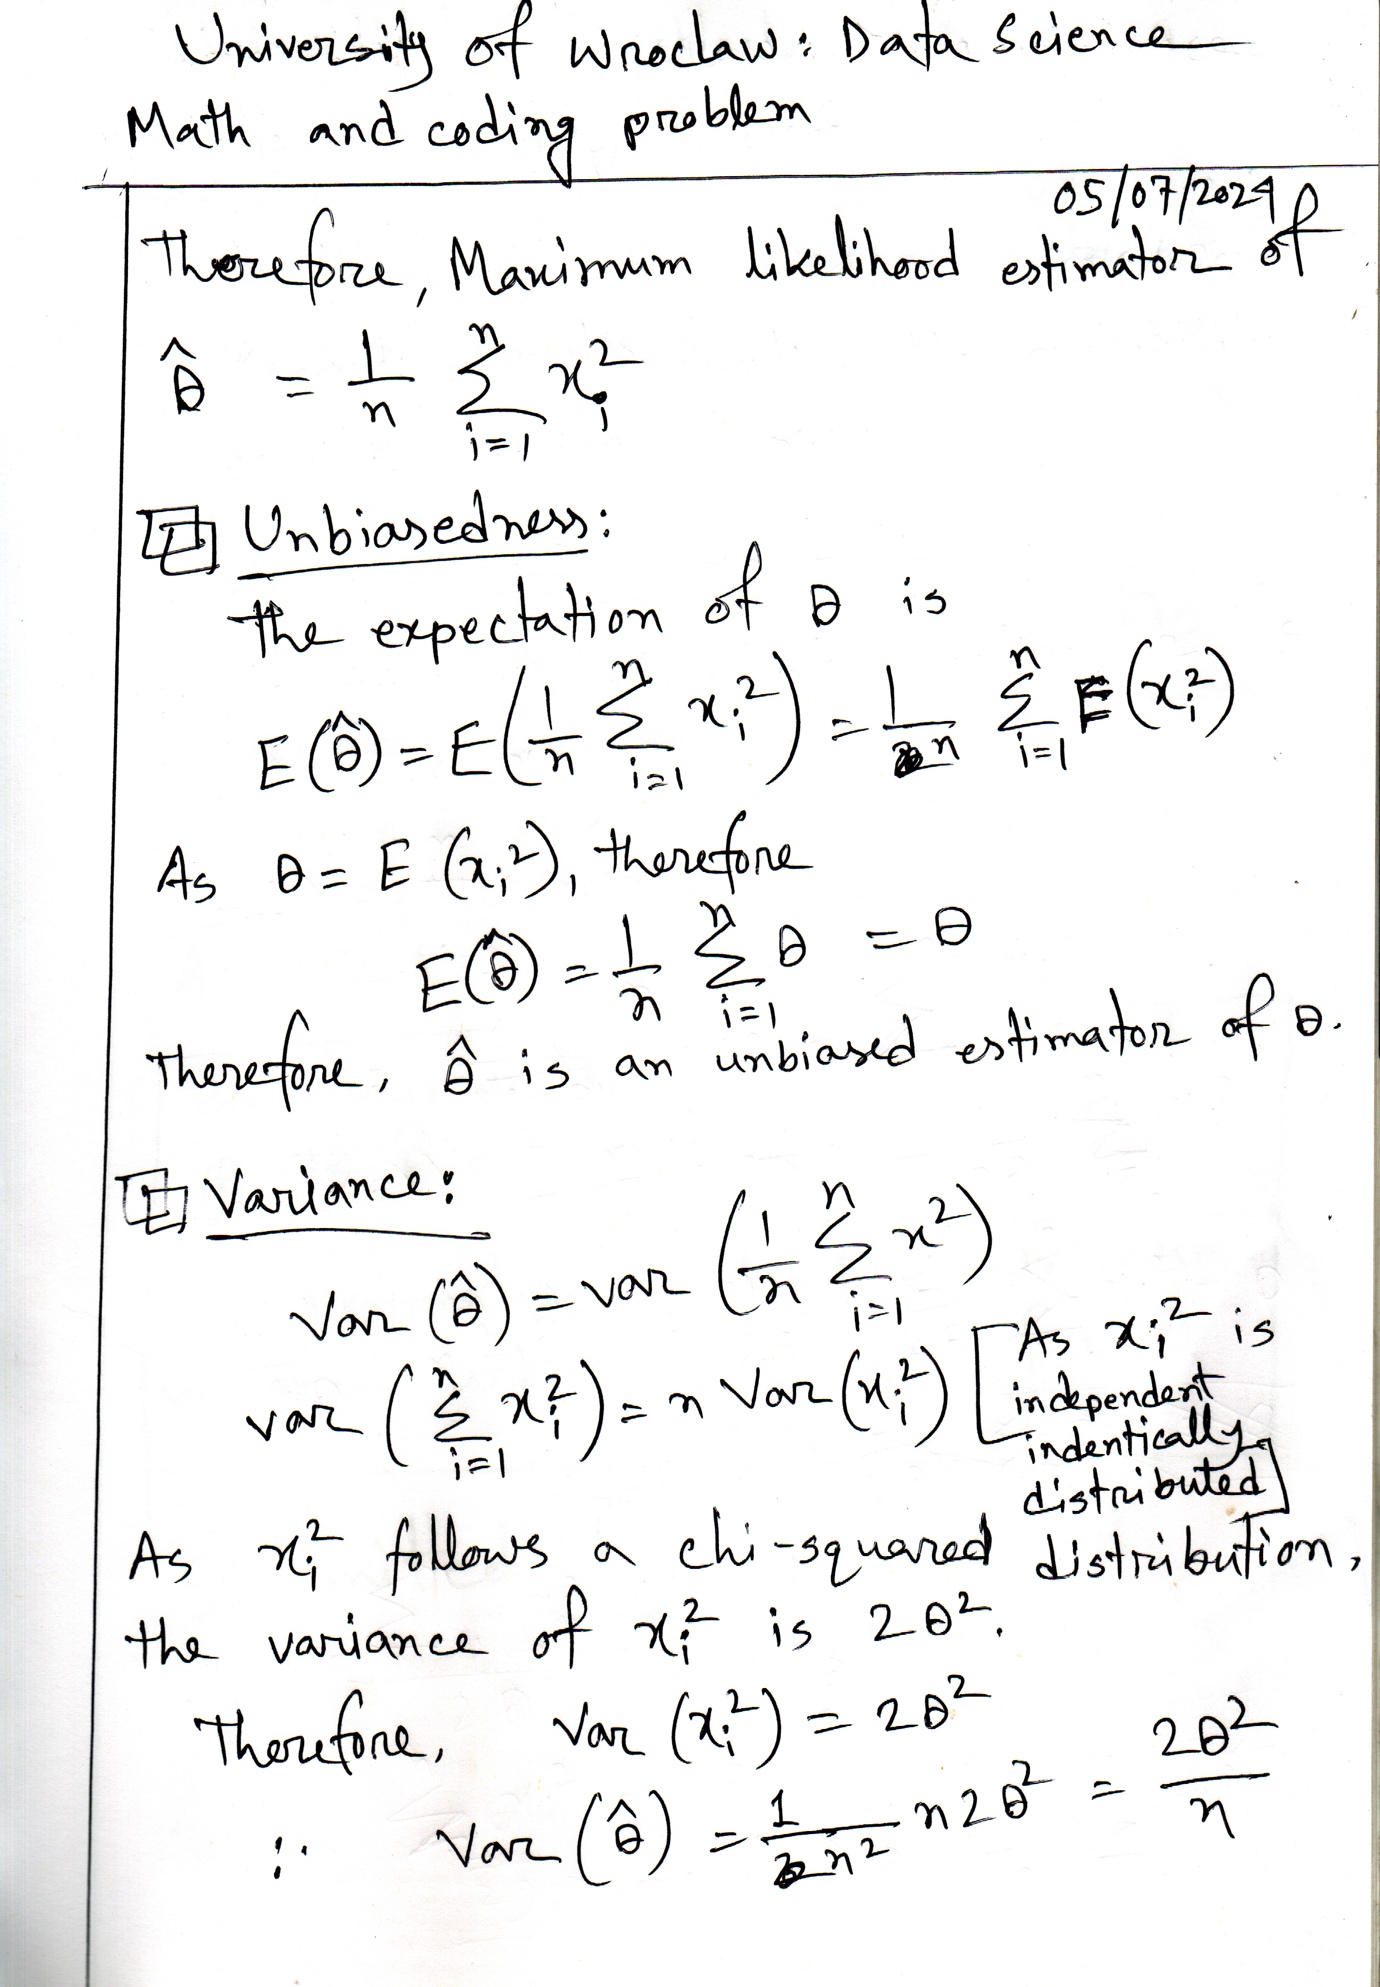 University of Wroclaw: Data Science
Math and coding problem
05/07/2024
Therefore, Maximum likelihood estimator of
θ̂ = 1/n Σ_{i=1}^{n} x_i^2
Unbiasedness:
The expectation of θ is
E(θ̂) = E(1/n Σ_{i=1}^{n} x_i^2) = 1/n Σ_{i=1}^{n} E(x_i^2)
As θ = E (x_i^2), therefore
E(θ̂) = 1/n Σ_{i=1}^{n} θ = θ
Therefore, θ̂ is an unbiased estimator of θ.
Variance:
Var (θ̂) = var (1/n Σ_{i=1}^{n} x^2)
var (Σ_{i=1}^{n} x_i^2) = n Var (x_i^2) [As x_i^2 is
independent
indentically
distributed]
As x_i^2 follows a chi-squared distribution,
the variance of x_i^2 is 2θ^2.
Therefore, Var (x_i^2) = 2θ^2
∴ Var (θ̂) = 1/n^2 n2θ^2 = 2θ^2/n